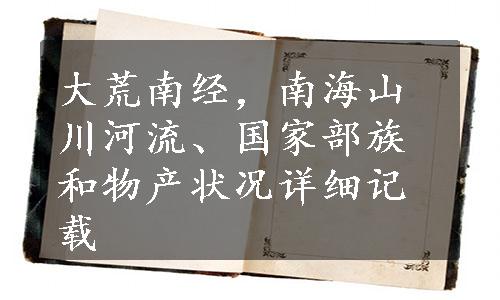 大荒南经，南海山
川河流、国家部族
和物产状况详细记
载